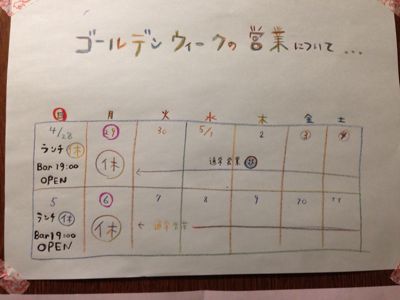 ゴールデンウィークの営業について...
日 月 火 水 木 金 土
4/28 29 30 5/1 2 3 4
ランチ休 休 通常営業
Bar 19:00
OPEN
5 6 7 8 9 10 11
ランチ休 休 通常営業
Bar 19:00
OPEN